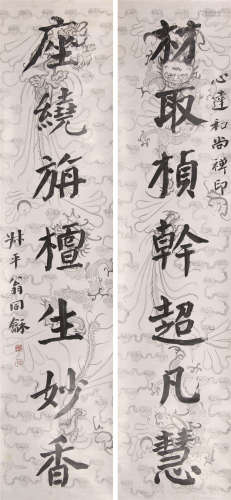 心達和尚禪印
材取楨幹超凡慧
座繞旃檀生妙香
叔平翁同龢